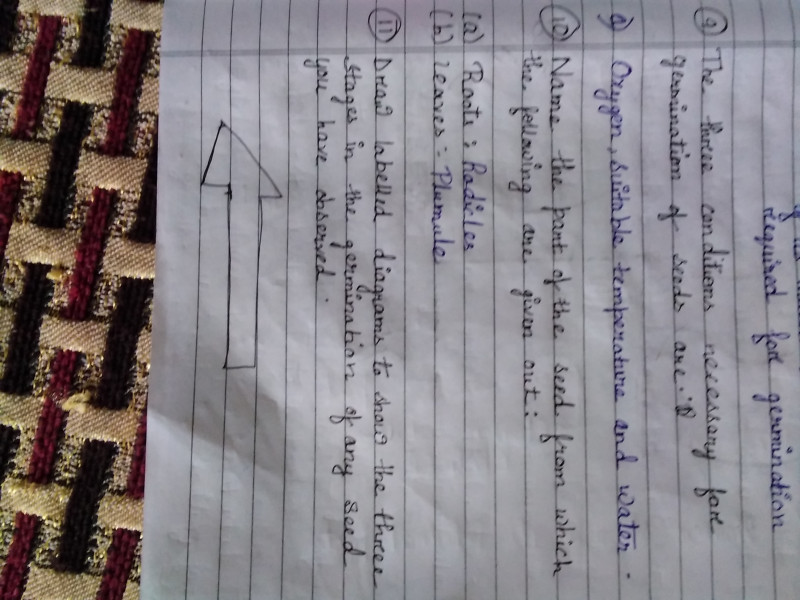 required for germination
⑨ The three conditions necessary for
germination of seeds are:
Oxygen, suitable temperature and water.
⑩ Name the part of the seed from which
the following are given out:
(a) Roots: Radicles
(b) Leaves: Plumule
⑪ Draw labelled diagrams to show the three
stages in the germination of any seed
you have observed.